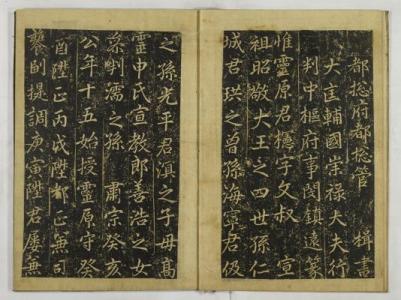 都摠府都摠管 楫書
大匡輔國崇祿大夫行
判中樞府事閔鎮遠篆
惟靈原君櫶字文叔 宣
祖昭敬大王之四世孫仁
城君珙之曾孫海寧君伋
之孫光平君滇之子母高
靈申氏宣教郎善浩之女
叅判濡之孫 肅宗癸亥
公年十五始授靈原守癸
酉陞正丙戌陞都正兼司
饔副提調庚寅陞君屢兼